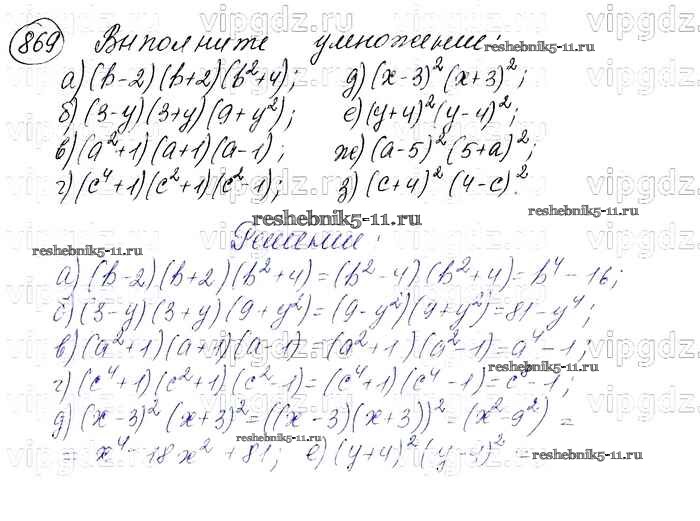 869 Выполните умножение:
а) (b-2)(b+2)(b²+4); д) (x-3)²(x+3)²;
б) (3-y)(3+y)(9+y²); е) (y+4)²(y-4)²;
в) (a²+1)(a+1)(a-1); ж) (a-5)²(5+a)²;
г) (c⁴+1)(c²+1)(c²-1); з) (c+4)²(4-c)².
Решение:
а) (b-2)(b+2)(b²+4)=(b²-4)(b²+4)=b⁴-16;
б) (3-y)(3+y)(9+y²)=(9-y²)(9+y²)=81-y⁴;
в) (a²+1)(a+1)(a-1)=(a²+1)(a²-1)=a⁴-1;
г) (c⁴+1)(c²+1)(c²-1)=(c⁴+1)(c⁴-1)=c⁸-1;
д) (x-3)²(x+3)²=((x-3)(x+3))²=(x²-9²)=
= x⁴-18x²+81; е) (y+4)²(y-4)² =
vipgdz
reshebnik5-11.ru